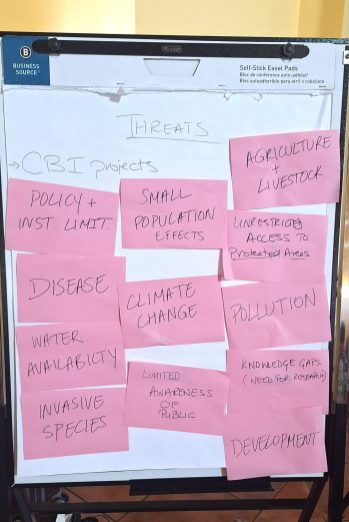 BUSINESS
SOURCE
Self-Stick Easel Pads
Bloc de conférence auto-adhésif
Bloc autoadherible para atril o caballete
THREATS
→CBI projects
POLICY +
INST. LIMIT.
DISEASE
WATER
AVAILABILTY
INVASIVE
SPECIES
SMALL
POPULATION
EFFECTS
CLIMATE
CHANGE
LIMITED
AWARENESS
OF
PUBLIC
AGRICULTURE
+
LIVESTOCK
UNRESTRICTED
ACCESS TO
Protected Areas
POLLUTION
KNOWLEDGE GAPS
(NEED FOR RESEARCH)
DEVELOPMENT